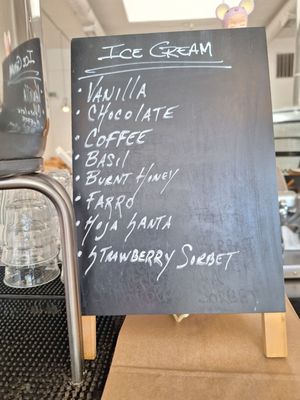 ICE CREAM
• VANILLA
• CHOCOLATE
• COFFEE
• BASIL
• BURNT HONEY
• FARRO
• HOJA SANTA
• STRAWBERRY SORBET